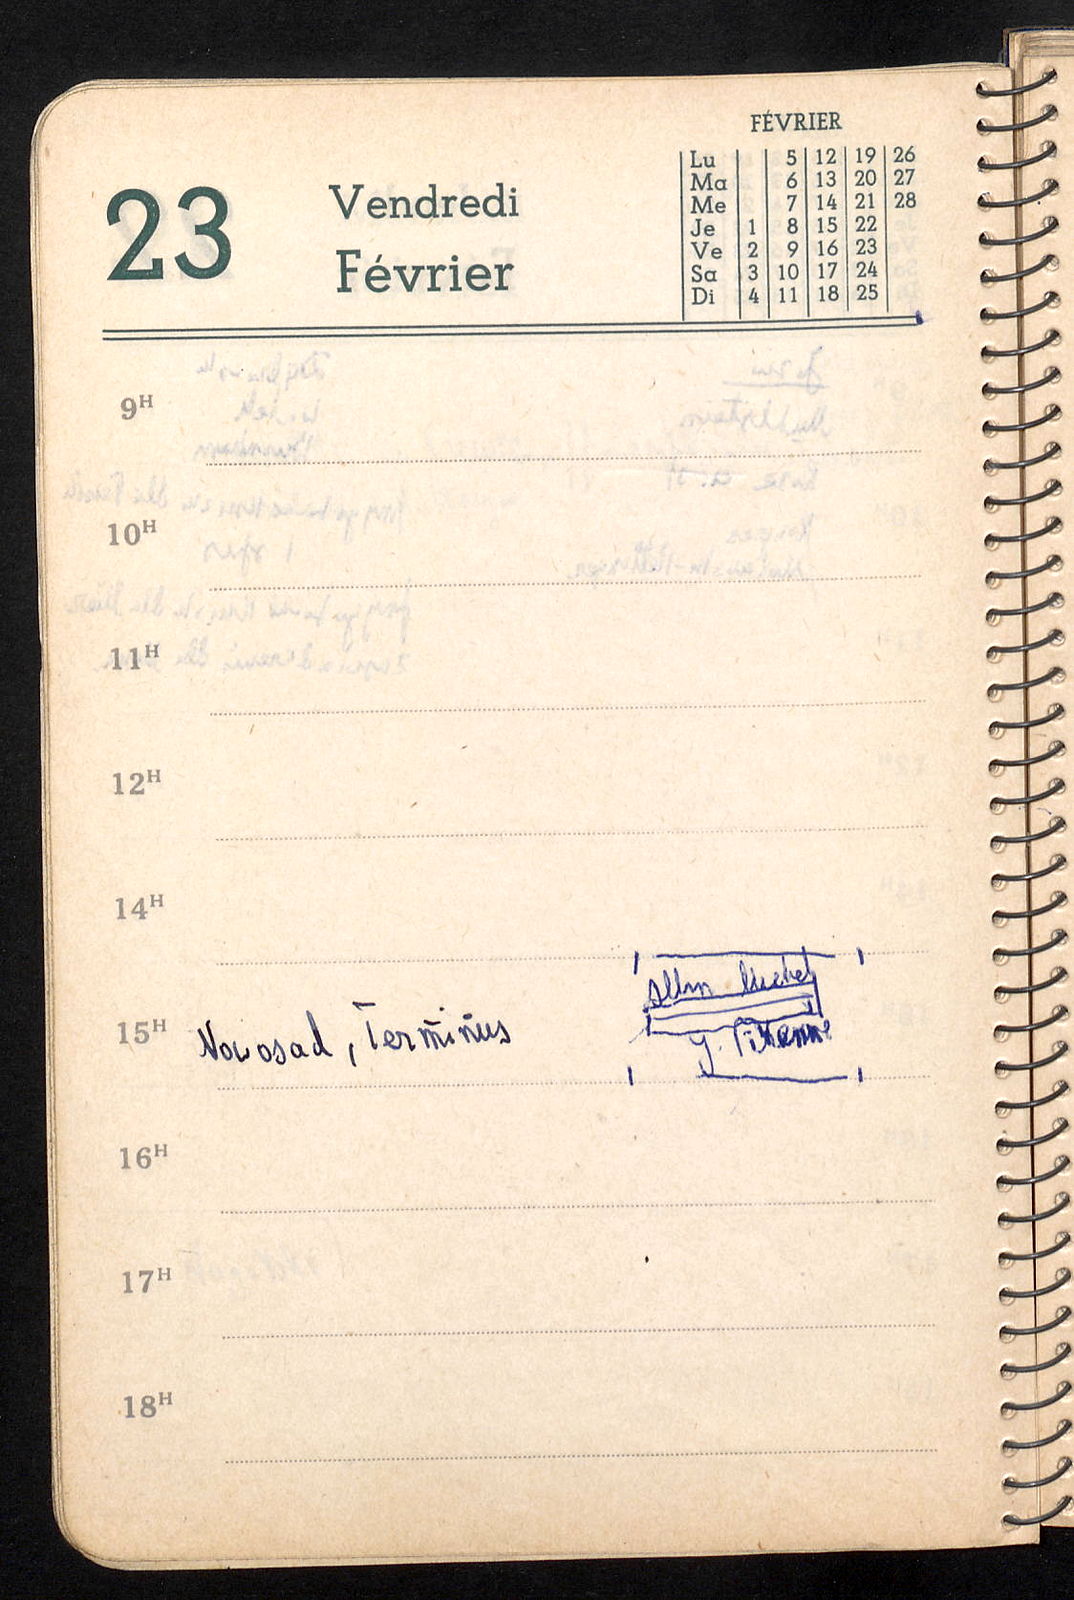 23
Vendredi
Février
FÉVRIER
Lu 5 12 19 26
Ma 6 13 20 27
Me 7 14 21 28
Je 1 8 15 22
Ve 2 9 16 23
Sa 3 10 17 24
Di 4 11 18 25
9H
10H
11H
12H
14H
15H Nowosad, Terminus
16H
17H
18H